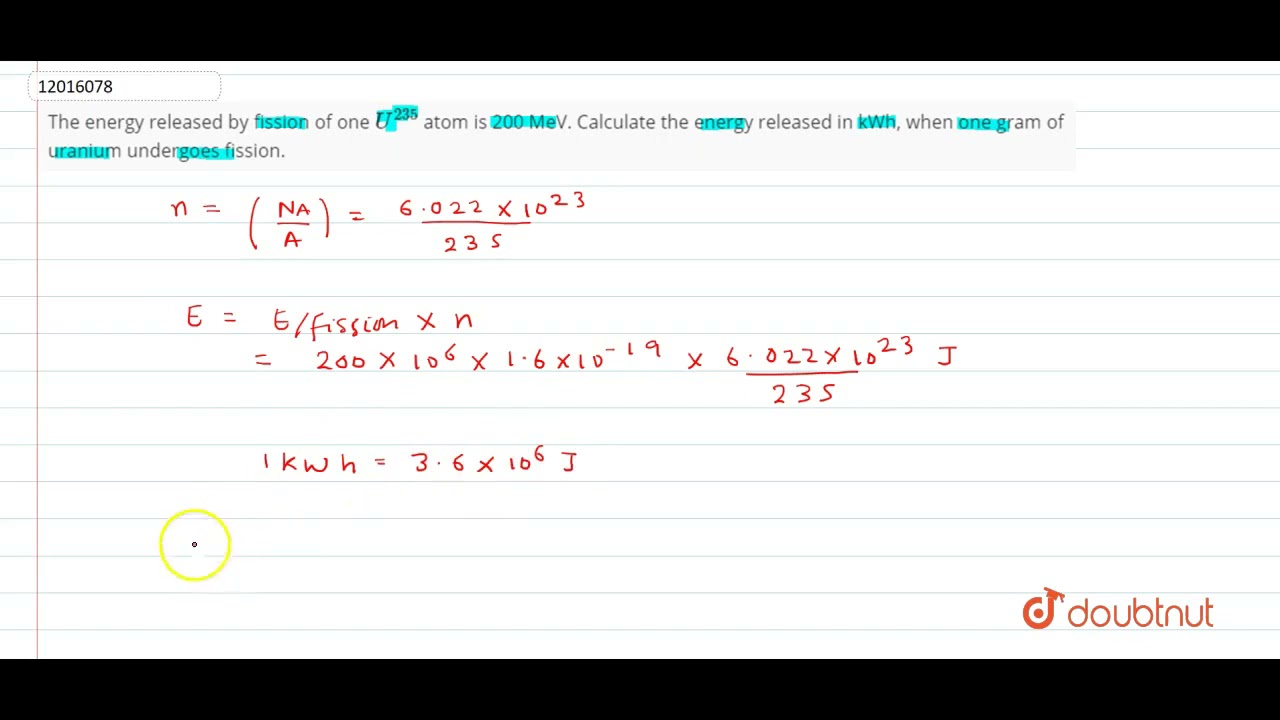 12016078
The energy released by fission of one U^235 atom is 200 MeV. Calculate the energy released in kWh, when one gram of
uranium undergoes fission.
n = (NA/A) = 6.022 × 10^23/235
E = E/fission × n
= 200 × 10^6 × 1.6 × 10^-19 × 6.022 × 10^23/235 J
1 kWh = 3.6 × 10^6 J
doubtnut